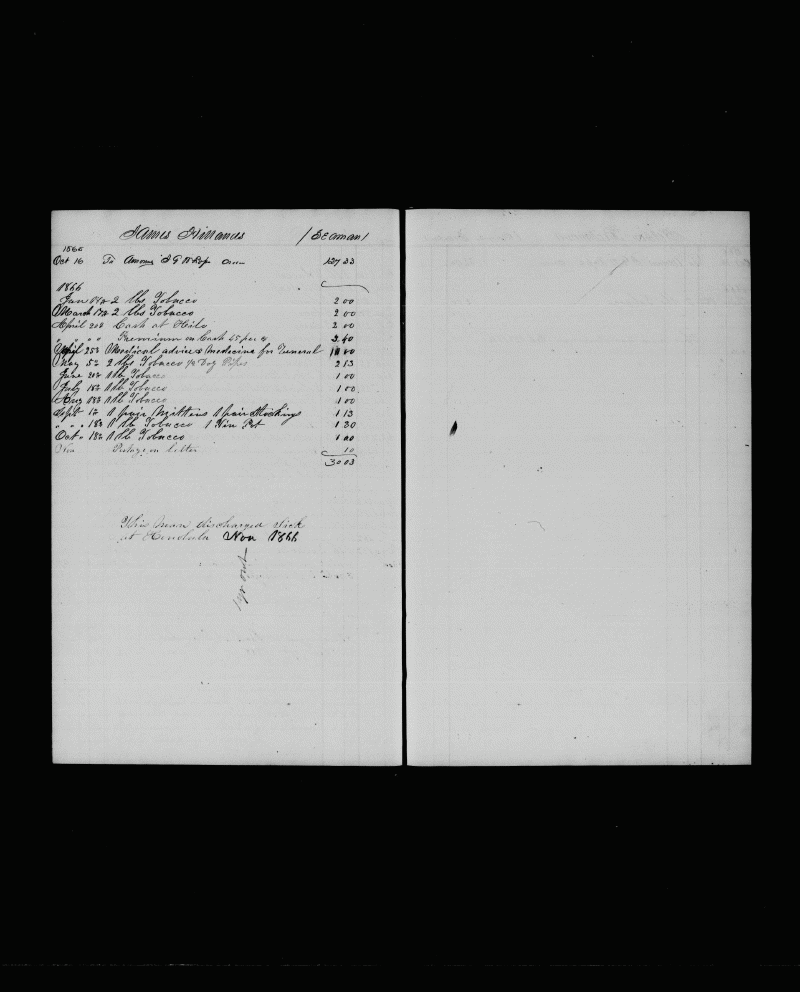 James (Seaman)
1865
Oct 16 To Amount 127 33
1866
Jan 2 lbs Tobacco 2 00
March 17th 2 lbs Tobacco 2 00
April 20th Cash at Hilo 2 00
" " " Premium on Cash 25 per c 40
April 25th Medical advice & Medicine for 10 00
May 5th 2 lbs Tobacco 1/2 Doz Pipes 2 13
June 20th 1 lb Tobacco 1 00
July 18th 1 lb Tobacco 1 00
Aug 18th 1 lb Tobacco 1 00
Sept 12 1 pair Mittens 1 pair Stockings 1 13
" " 18th 1 lb Tobacco 1 Tin Pot 1 30
Oct " 18th 1 lb Tobacco 1 00
Nov Postage on letter 10
30 03
This man discharged sick
at Honolulu Nov 1866